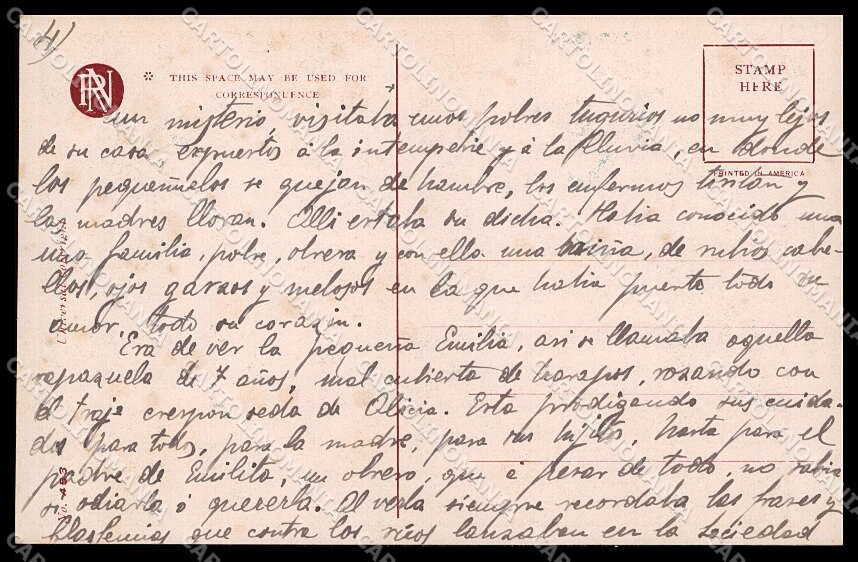 4)
RPN
* THIS SPACE MAY BE USED FOR
CORRESPONDENCE
STAMP
HERE
PRINTED IN AMERICA
un misterio, visitaba unos pobres tugurios no muy lejos
de su casa expuestos á la intemperie y á la lluvia, en donde
los pequeñuelos se quejan de hambre, los enfermos tiritan y
las madres lloran. Alli estaba su dicha. Habia conocido una
una familia, pobre, obrera y con ella una niña, de rubios cabe-
llos, ojos garzos y melosos en la que habia puesto todo su
amor, todo su corazon.
Era de ver la pequeña Emilia, asi se llamaba aquella
rapazuela de 7 años, mal cubierta de harapos, rozando con
el traje crespon seda de Alicia. Esta prodigando sus cuida-
dos para todos, para la madre, para sus hijitos, hasta para el
padre de Emilita, un obrero, que á pesar de todo, no sabia
si odiarla ó quererla. Al verla siempre recordaba las frases y
blasfemias que contra los ricos lanzaban en la sociedad
No. 493
CARTOLINOMANIA